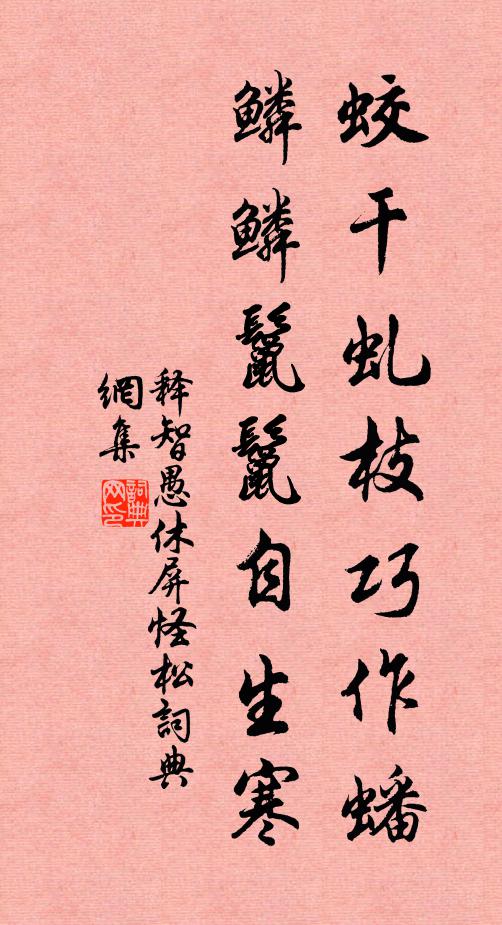 蛟干虬枝巧作蟠
鳞鳞鬣鬣自生寒
释智愚休屏怪松詞典
網集
詞典网印